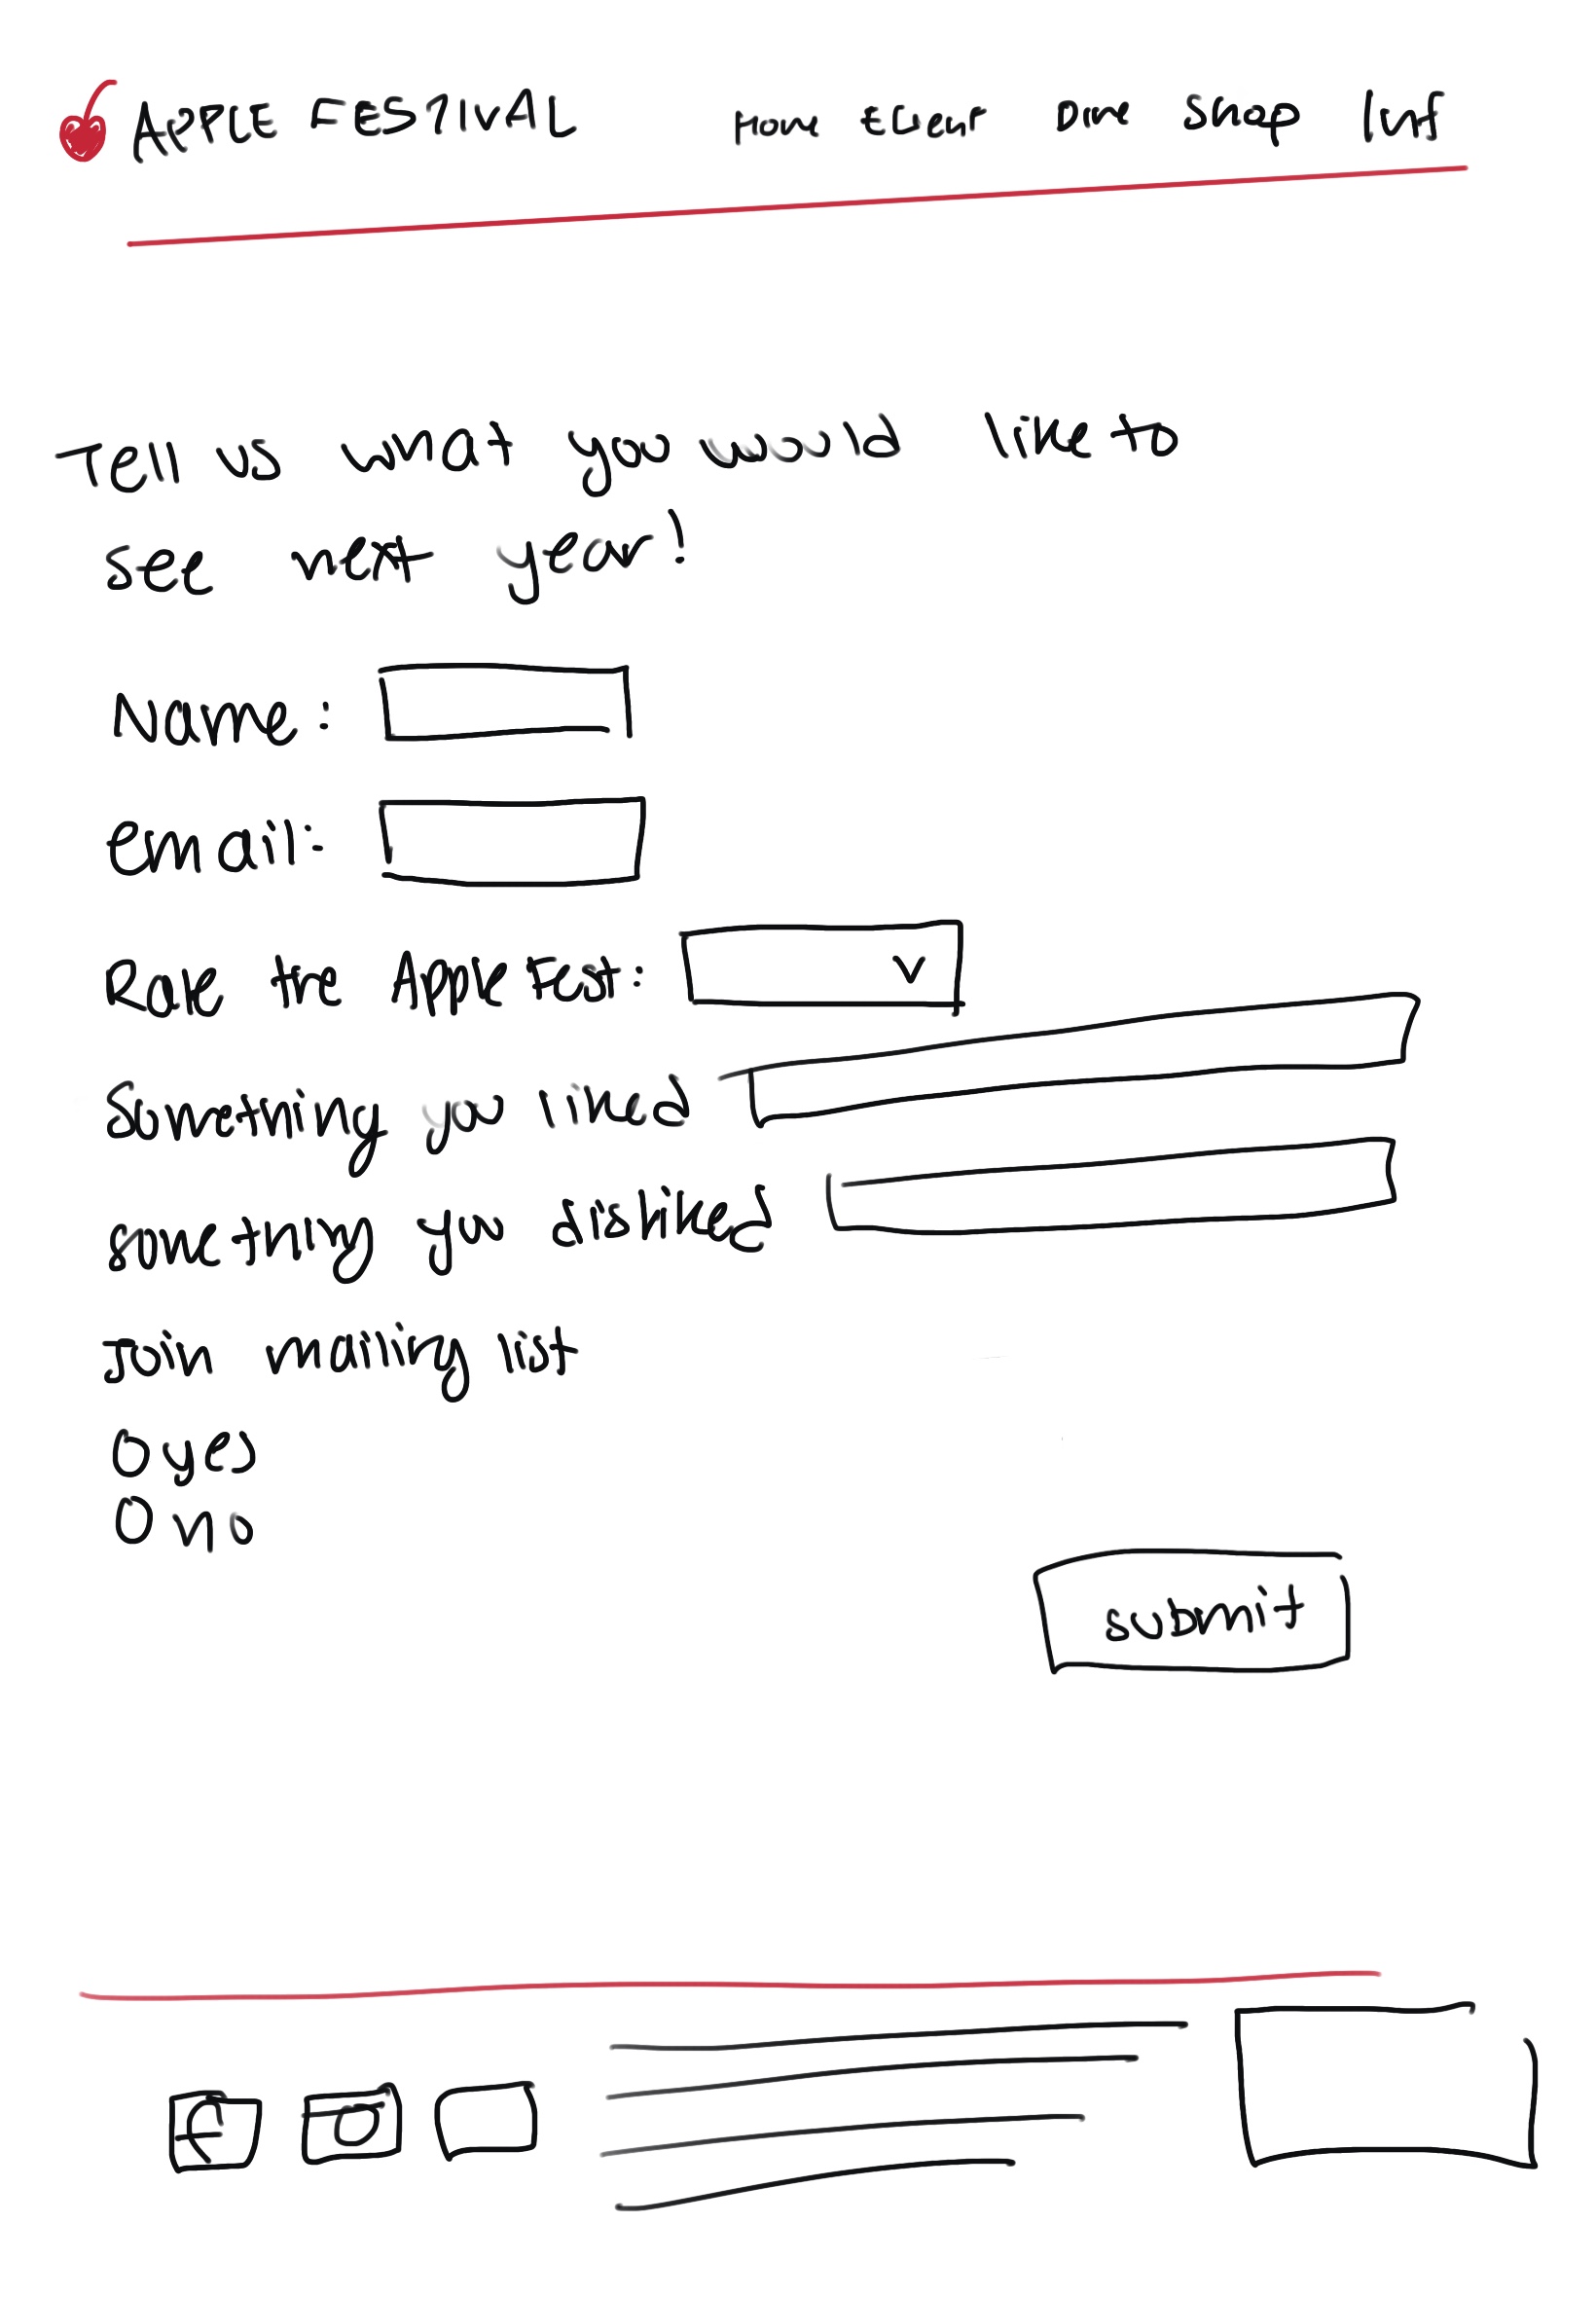 APPLE FESTIVAL Home Event Dine Shop Inf
Tell us what you would like to
see next year!
Name:
email:
Rate the Apple Fest: v
Something you liked
something you disliked
Join mailing list
O yes
O no
submit
f